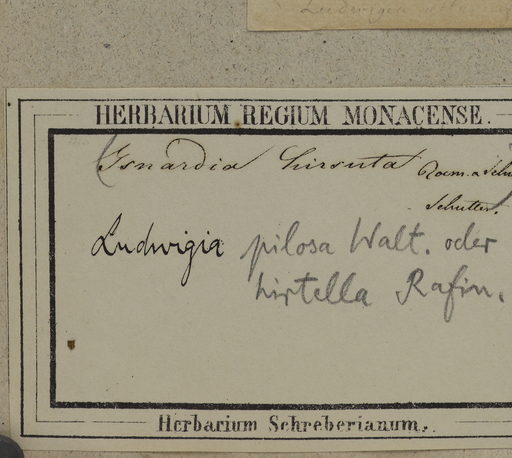 Ludwigia
HERBARIUM REGIUM MONACENSE.
(Isnardia hirsuta Roem. & Schu
Schultes.
Ludwigia pilosa Walt. oder
hirtella Rafin.
Herbarium Schreberianum.